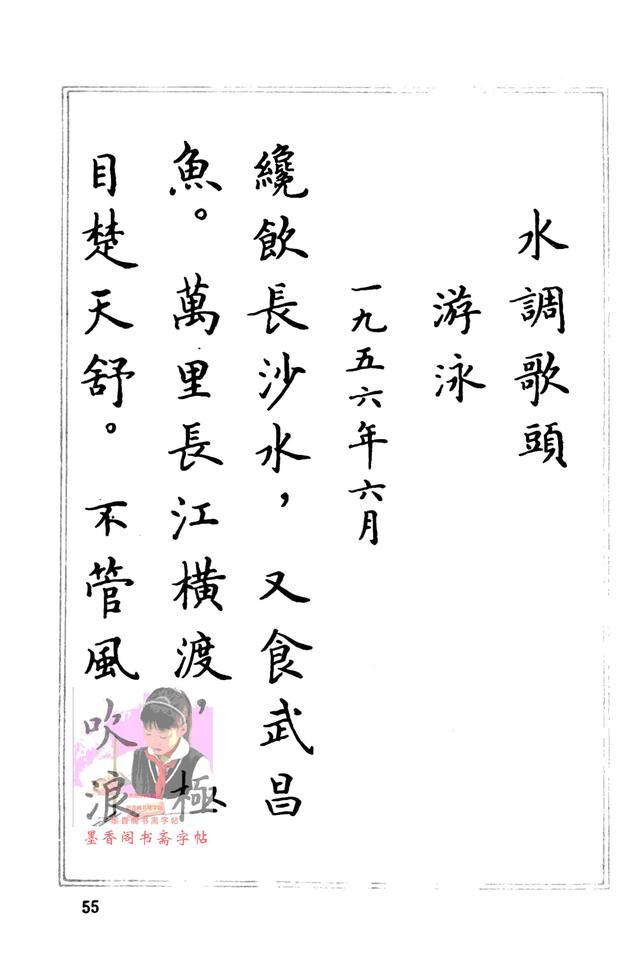 水調歌頭
游泳
一九五六年六月
纔飲長沙水，又食武昌
魚。萬里長江橫渡，極
目楚天舒。不管風吹浪
墨香阁书斋字帖
墨香阁书斋字帖
55